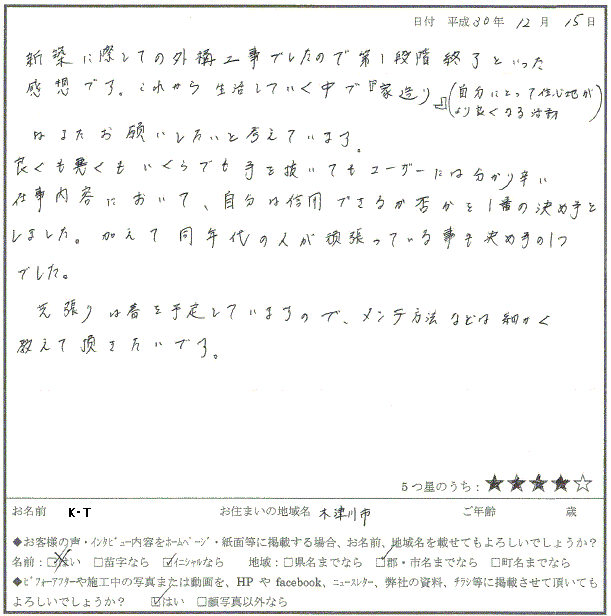 日付 平成30年12月15日
新築に際しての外構工事でしたので第1段階終了といった
感想です。これから生活していく中で『家造り』(自分にとって住心地が
より良くなる活動)
はまたお願いしたいと考えています。
良くも悪くもいくらでも手を抜いてもユーザーには分かり辛い
仕事内容において、自分は信用できるか否かを1番の決め手と
しました。加えて同年代の人が頑張っている事も決め手の1つ
でした。
芝張りは春を予定していますので、メンテ方法などは細かく
教えて頂きたいです。
5つ星のうち:★★★★☆
お名前 K・T お住まいの地域名 木津川市 ご年齢 歳
◆お客様の声・インタビュー内容をホームページ・紙面等に掲載する場合、お名前、地域名を載せてもよろしいでしょうか?
名前:□はい □苗字なら ☑イニシャルなら 地域:□県名までなら ☑郡・市名までなら □町名までなら
◆ビフォーアフターや施工中の写真または動画を、HP や facebook、ニュースレター、弊社の資料、チラシ等に掲載させて頂いても
よろしいでしょうか? ☑はい □顔写真以外なら